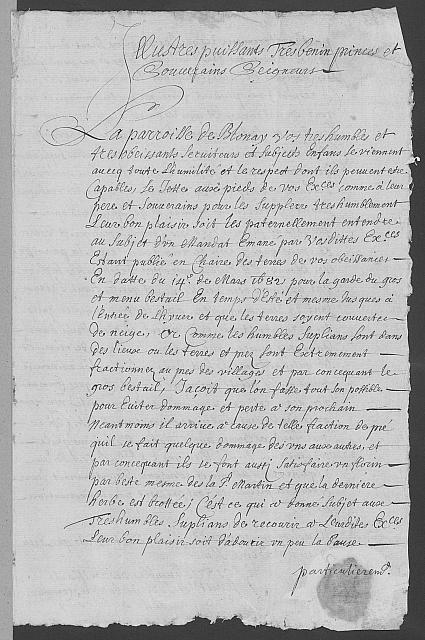 Illustres puissants Tres benin princes et
Souverains Seigneurs
La parroisse de Blonay vos tres humbles et
tres obeissants serviteurs et Subjects Enfans se viennent
avecq toute L'humilité et le respect dont ils peuvent estre
Capables, Se Jetter aux pieds de vos Exces comme a leur
pere et Souverains pour les Supplier tres humblement
Leur bon plaisir soit les paternellement entendre
au Subject d'vn Mandat Emané par Vosdittes Exces
Estant publié en Chaire des terres de vos obeissances
En datte du 14e de Mars 1682 pour la garde du gros
et menu bestail En temps d'Esté et mesme Jusques à
L'Entrée de L'hyver et que les terres soyent couvertes
de neige, Or Comme les humbles Suplians sont dans
des lieux ou les terres et prez sont Extremement
fractionnez au pres des villages et par consequant le
gros bestail, Jaçoit que l'on fasse tout son possible
pour Eviter dommage et perte a son prochain
Neantmoins il arrive a cause de telle fraction de pie
qu'il se fait quelque dommage des vns aux autres, et
par consequant ils se font aussy satisfaire vn florin
par beste mesme des la St Martin et que la derniere
herbe est brottée; C'est ce qui a donné Subjet aux
Tres humbles Suplians de recourir a Leursdites Exces
Leur bon plaisir soit d'adoucir vn peu la Cause
particulieremt